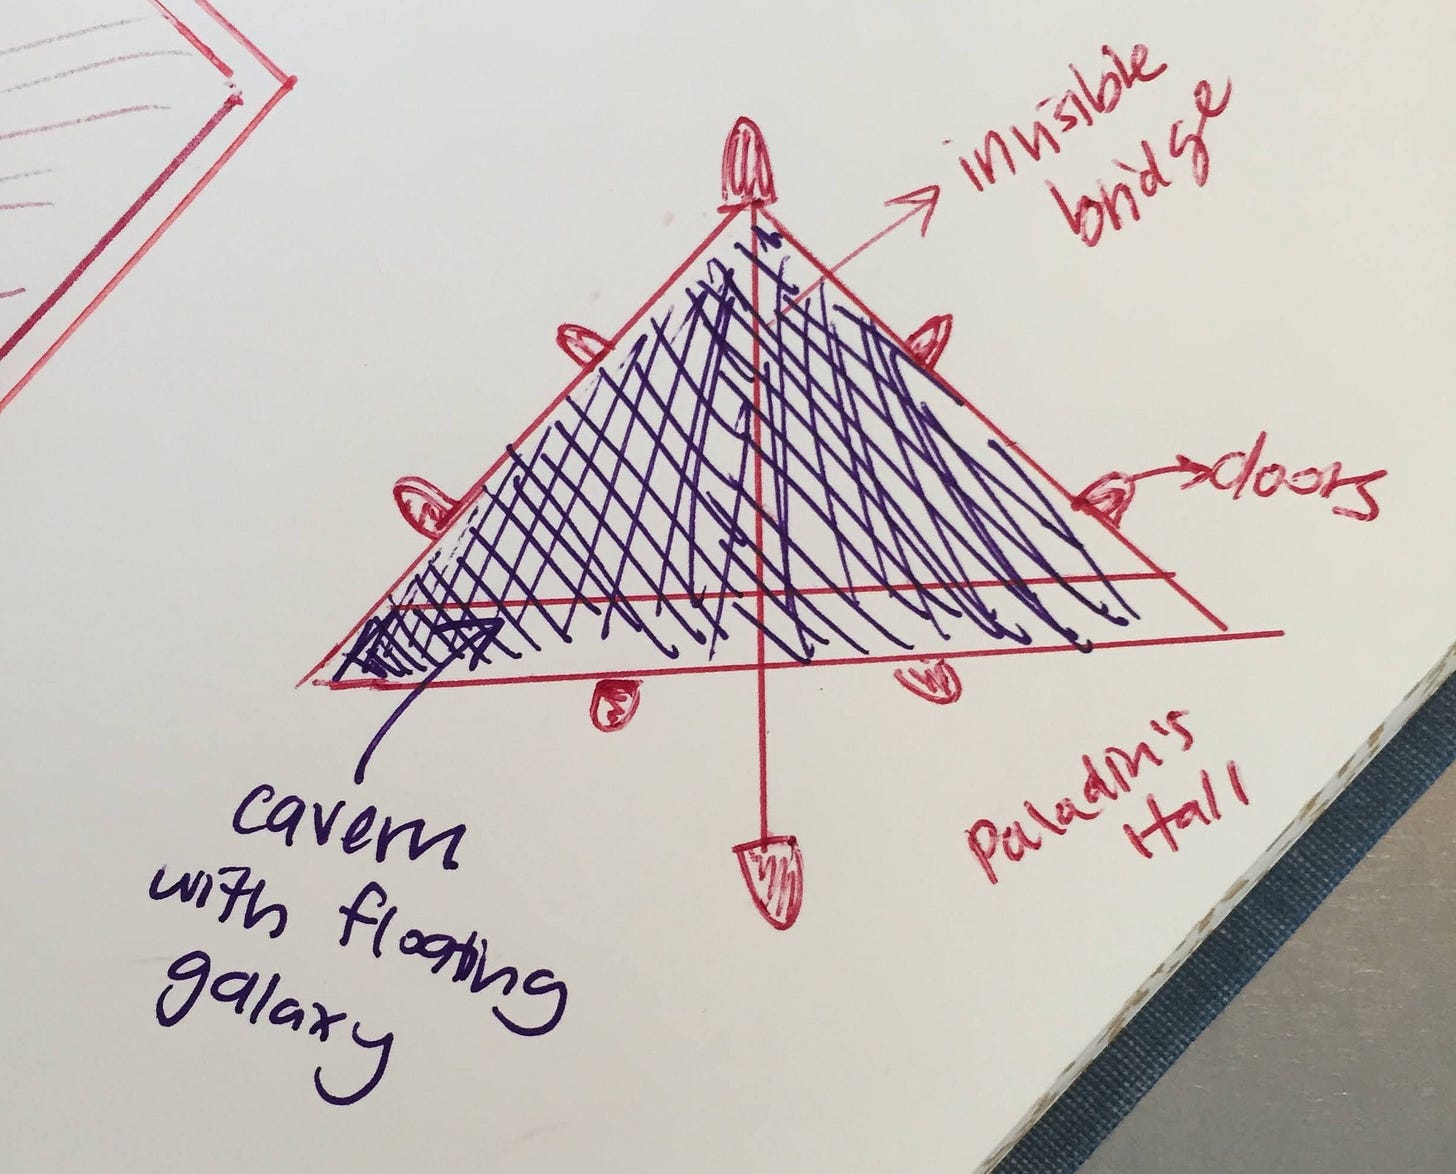 invisible
bridge
doors
Paladin's
Hall
cavern
with floating
galaxy